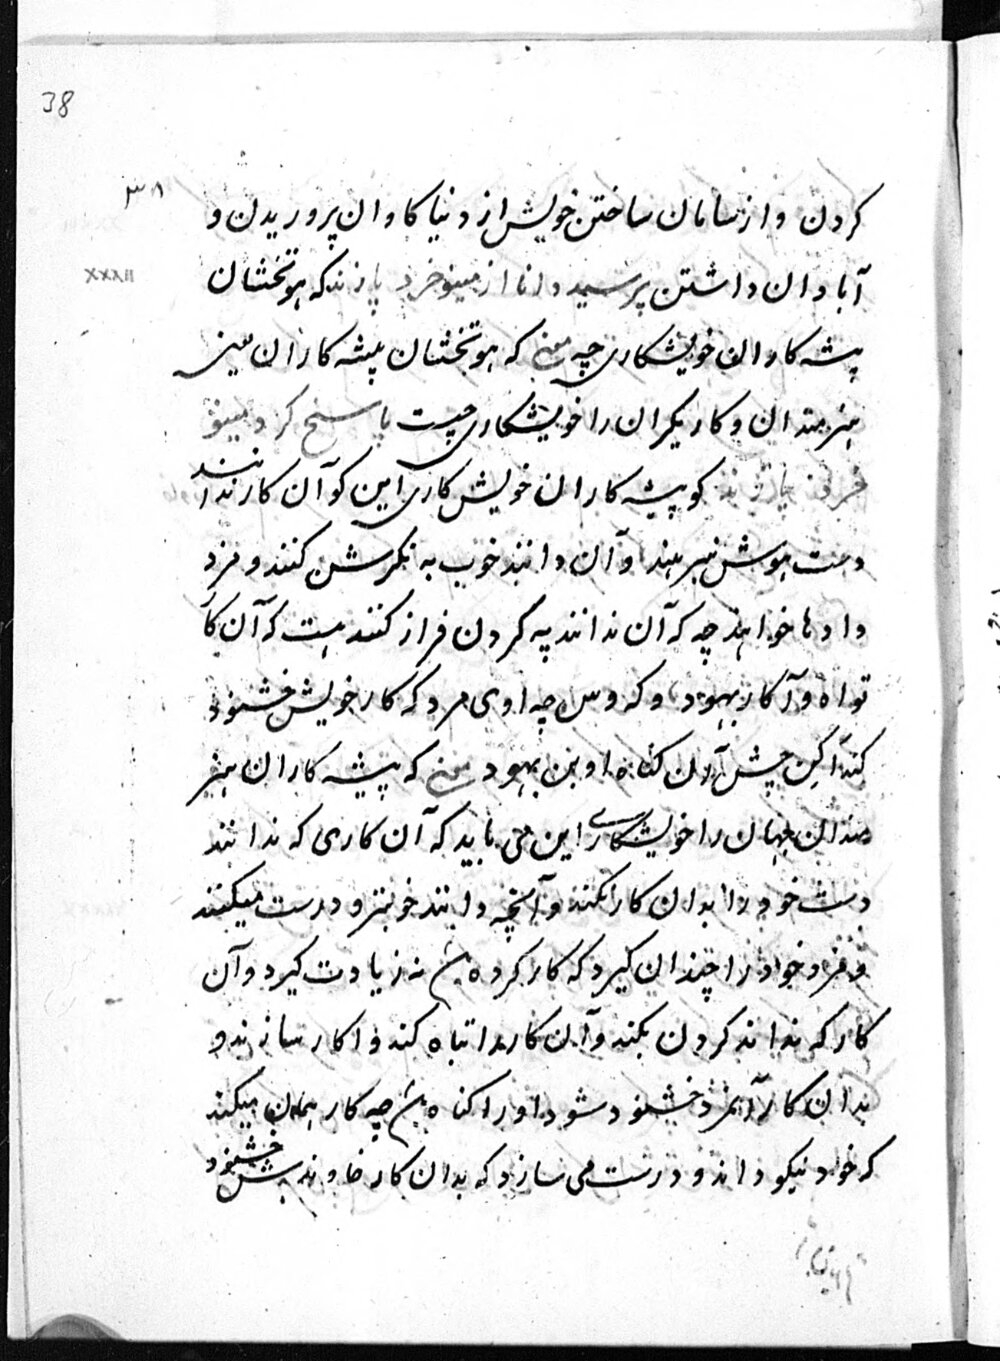 38
۳۸
کردن و از سامان ساختن خویش از دنیا کاوان پروریدن و
آبادان داشتن پرسید دانا از مینوخرد پازند که هوتخشان
پیشه کاران خویشکاری چه معنی که هوتخشان پیشه کاران یعنی
هنرمندان و کاریگران را خویشکاری چیست پاسخ کرد مینو
خرد پازند کو پیشه کاران خویش کاری این کو آن کار ندانند
دست هوش نبرهند و آن دانند خوب به نگرشن کنند و مزد
دادها خواهند چه که آن ندانند په کردن فراز کنند هست که آن کا
تواه و آکار بهود و که وس چه اوی مرد که کار خویش خشنود
کند آگین چش آن کناه او بن بهود معنی که پیشه کاران هنر
مندان جهان را خویشکاری این می باید که آن کاری که ندانند
دست خود را بدان کار نکنند و آنچه دانند خوبتر و درست میکنند
و مزد خود را چندان گیرد که کار کرده باشد نه زیادت گیرد و آن
کار که نداند کردن بکند و آن کار را تباه کند و اکار سازند و
بدان کار آنمزد خشنود شود او را کناه باشد چه کار همان میکند
که خود نیکو داند و درست می سازد که بدان کار خاوندش خشنود